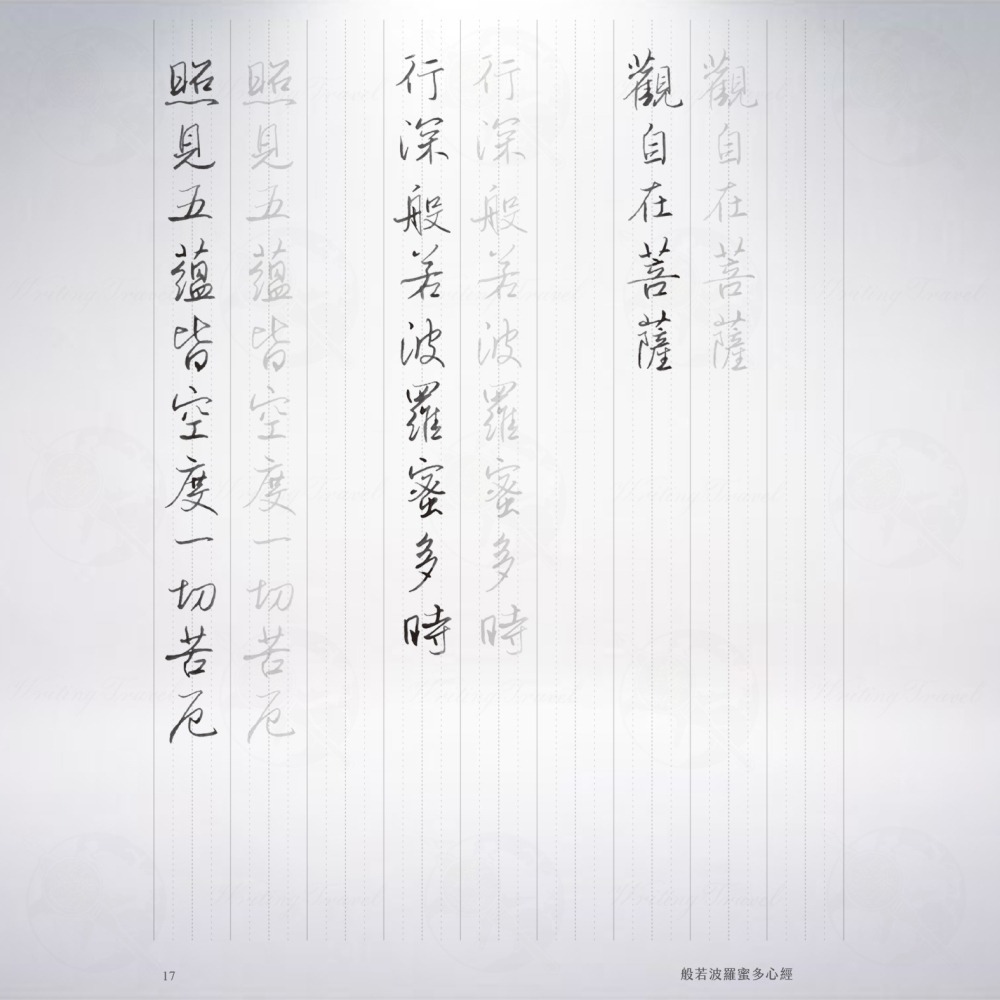 觀自在菩薩
觀自在菩薩
行深般若波羅蜜多時
行深般若波羅蜜多時
照見五蘊皆空度一切苦厄
照見五蘊皆空度一切苦厄
17
般若波羅蜜多心經
Writing Travel